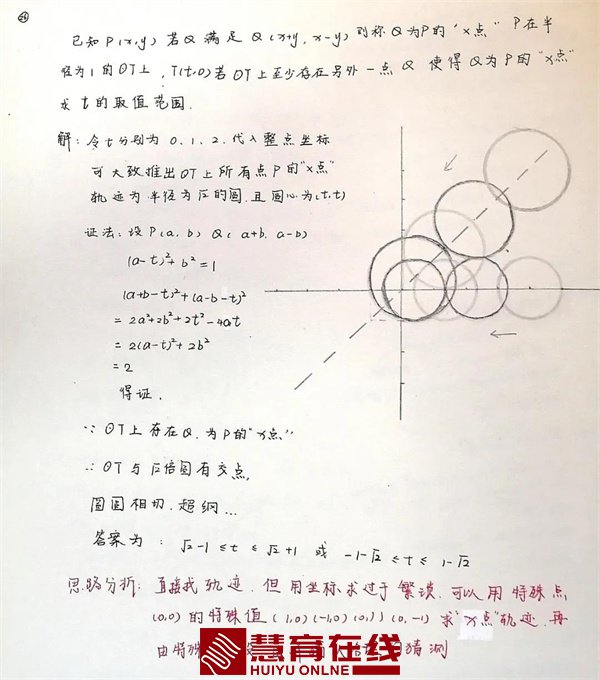 ㉖
已知P(x,y) 若Q 满足 Q(x+y, x-y) 则称Q为P的"X点" P在半
径为1的⊙T上, T(t,0)若⊙T上至少存在另外一点Q 使得Q为P的"X点"
求t的取值范围.
解: 令t分别为 0, 1, 2. 代入整点坐标
可大致推出⊙T上所有点P的"X点"
轨迹为半径为√2的圆.且圆心为(t,t)
证法: 设P(a, b) Q( a+b, a-b)
(a-t)²+b²=1
(a+b-t)²+(a-b-t)²
= 2a²+2b²+2t²-4at
= 2(a-t)²+2b²
= 2
得证.
∵ ⊙T上存在Q.为P的"X点"
∴ ⊙T与√2倍圆有交点.
圆圆相切.超纲...
答案为: √2-1≤t≤√2+1 或 -1-√2≤t≤1-√2
思路分析: 直接找轨迹.但用坐标求过于繁琐.可以用特殊点
(0,0)的特殊值(1,0)(-1,0)(0,1)(0,-1)求"X点"轨迹.再
由特殊 猜测
慧育在线
HUIYU ONLINE